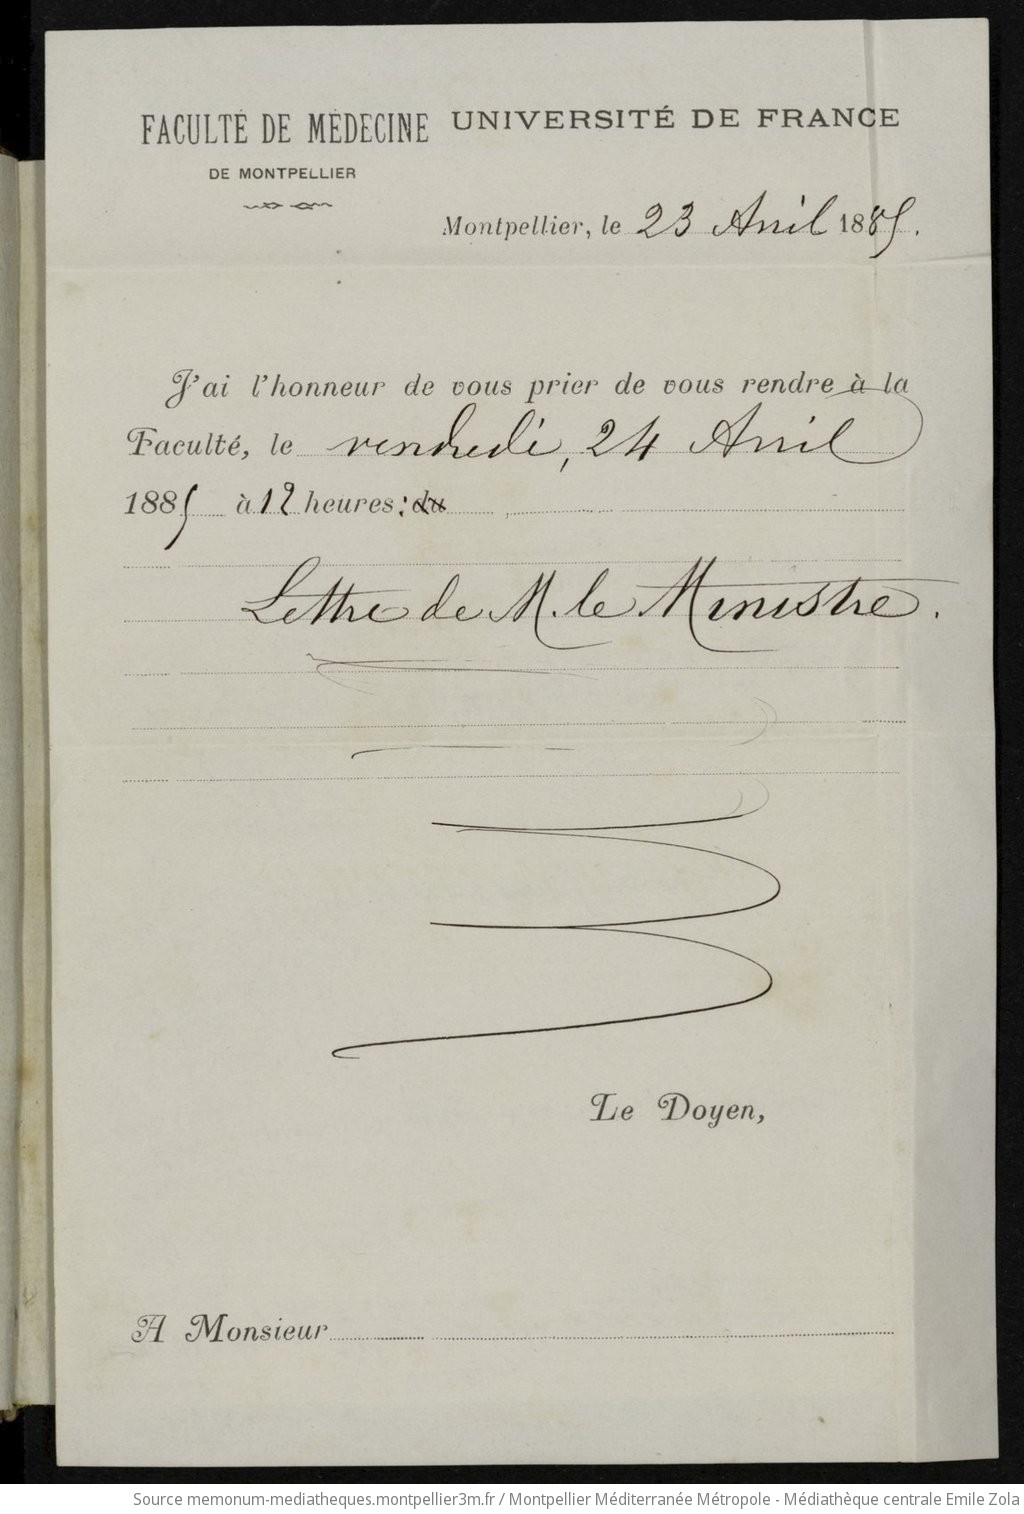 FACULTÉ DE MÉDECINE
DE MONTPELLIER
UNIVERSITÉ DE FRANCE
Montpellier, le 23 Avril 1885.
J'ai l'honneur de vous prier de vous rendre à la
Faculté, le vendredi, 24 Avril
1885 à 12 heures : du
Lettre de M. le Ministre.
Le Doyen,
A Monsieur
Source memonum-mediatheques.montpellier3m.fr / Montpellier Méditerranée Métropole - Médiathèque centrale Emile Zola